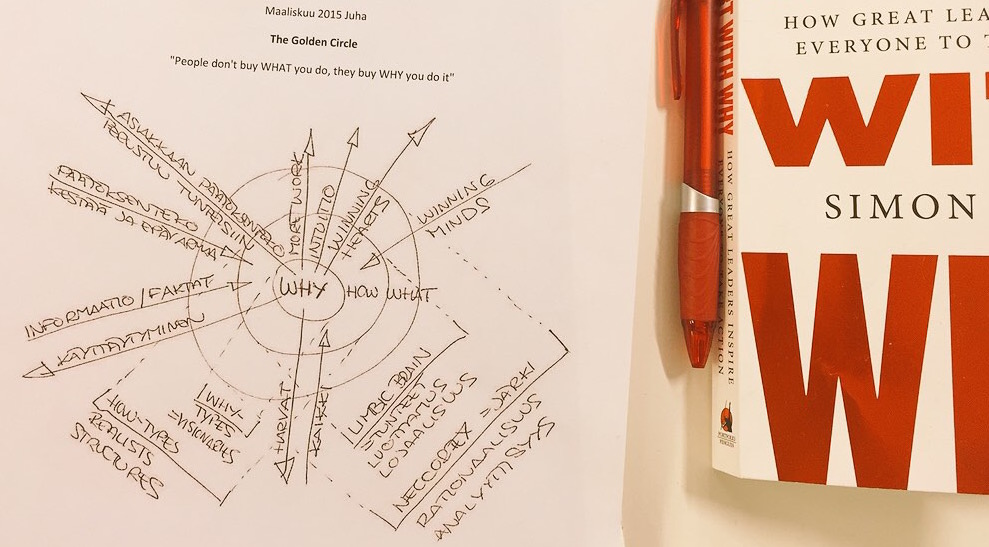 Maaliskuu 2015 Juha
The Golden Circle
"People don't buy WHAT you do, they buy WHY you do it"
ASIAKKAAN PÄÄTÖKSENTEKO
PERUSTUU TUNTEISIIN
PÄÄTÖKSENTEKO
KESTÄÄ JA EPÄVARMA
INFORMAATIO / FAKTAT
KÄYTTÄYTYMINEN
MORE WORK
INTUITIO
WINNING
HEARTS
WINNING
MINDS
WHY HOW WHAT
HOW-TYPES
REALISTS
STRUCTURES
WHY-
TYPES
=VISIONARIES
HARVAT
KAIKKI
LIMBIC BRAIN
=TUNTEET
LUOTTAMUS
LOJAALISUUS
NEOCORTEX =JÄRKI
RATIONAALISUUS
ANALYYTTISYYS
T WITH WHY
HOW GREAT LEADERS INSPIRE
HOW GREAT LEA
EVERYONE TO T
WIT
SIMON
W